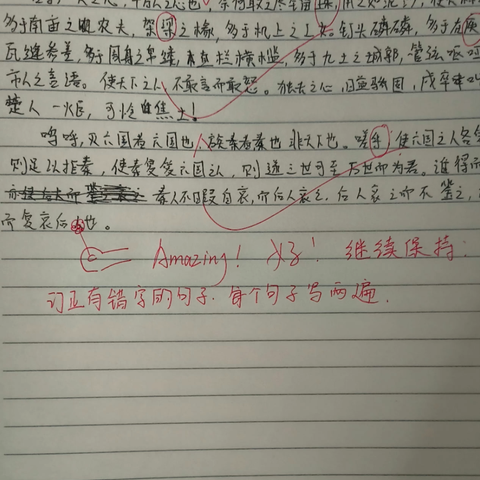 多于南亩之农夫，架梁之椽，多于机上之工女。钉头磷磷，多于在庾
瓦缝参差，多于周身之帛缕，直栏横槛，多于九土之城郭，管弦呕哑
市人之言语。使天下之人，不敢言而敢怒。独夫之心，日益骄固，戍卒叫
楚人一炬，可怜焦土！
呜呼，灭六国者六国也，族秦者秦也，非天下也。嗟乎，使六国之人各
则足以拒秦，使秦复爱六国之人，则递三世可至万世而为君。谁得而
秦人不暇自哀，而后人哀之，后人哀之而不鉴之，
而复哀后也。
Amazing! 好! 继续保持:
订正有错字的句子，每个句子写两遍.